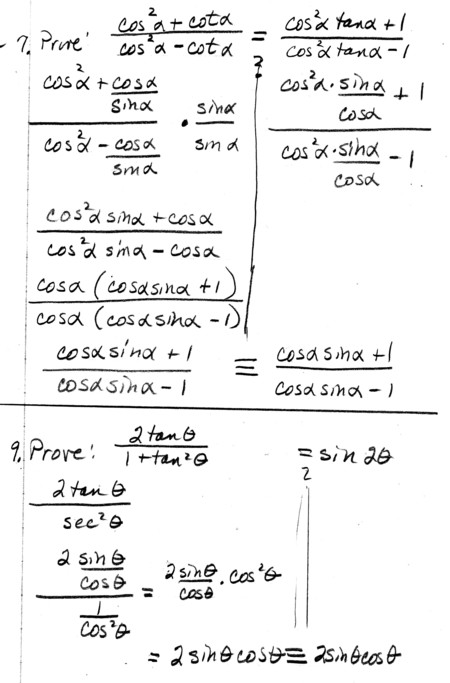 7. Prove: (cos²α + cotα)/(cos²α - cotα) = (cos²α tanα + 1)/(cos²α tanα - 1)
?
(cos²α + cosα/sinα)/(cos²α - cosα/sinα) · sinα/sinα
(cos²α · sinα/cosα + 1)/(cos²α · sinα/cosα - 1)
(cos²α sinα + cosα)/(cos²α sinα - cosα)
(cosα (cosα sinα + 1))/(cosα (cosα sinα - 1))
(cosα sinα + 1)/(cosα sinα - 1) ≡ (cosα sinα + 1)/(cosα sinα - 1)
9. Prove: (2 tanθ)/(1 + tan²θ) = sin 2θ
?
(2 tanθ)/(sec²θ)
(2 sinθ/cosθ)/(1/cos²θ) = (2 sinθ)/(cosθ) · cos²θ
= 2 sinθ cosθ ≡ 2 sinθ cosθ